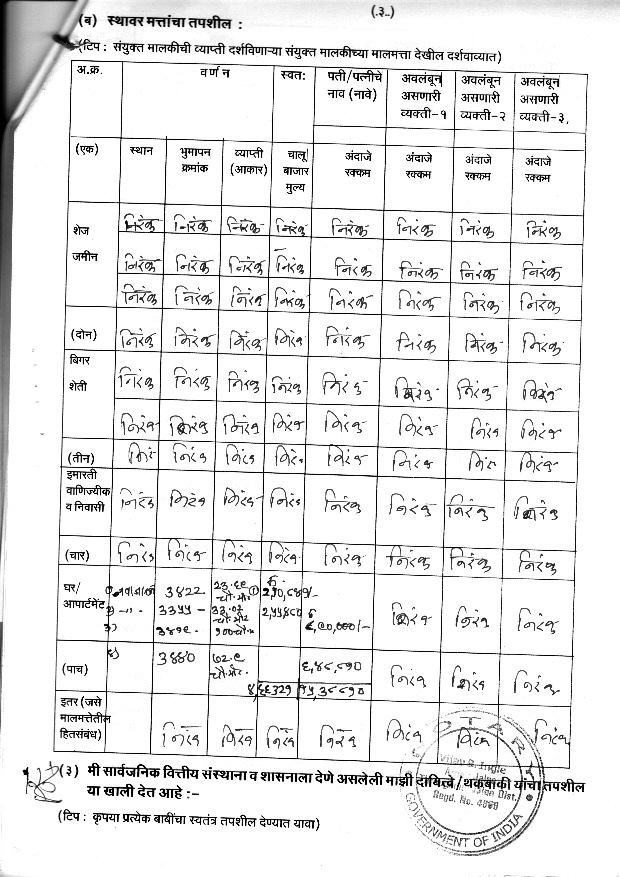 (.३..)
(ब) स्थावर मत्तांचा तपशील :
(टिप : संयुक्त मालकीची व्याप्ती दर्शविणाऱ्या संयुक्त मालकीच्या मालमत्ता देखील दर्शवाव्यात)
अ.क्र. वर्णन स्वत: पती/पत्नीचे नाव (नावे) अवलंबून असणारी व्यक्ती-१ अवलंबून असणारी व्यक्ती-२ अवलंबून असणारी व्यक्ती-३.
(एक) स्थान भुमापन क्रमांक व्याप्ती (आकार) चालू/ बाजार मुल्य अंदाजे रक्कम अंदाजे रक्कम अंदाजे रक्कम अंदाजे रक्कम
शेज निरंक निरंक निरंक निरंक निरंक निरंक निरंक निरंक
जमीन निरंक निरंक निरंक निरंक निरंक निरंक निरंक निरंक
निरंक निरंक निरंक निरंक निरंक निरंक निरंक निरंक
(दोन) निरंक निरंक निरंक निरंक निरंक निरंक निरंक निरंक
बिगर शेती निरंक निरंक निरंक निरंक निरंक निरंक निरंक निरंक
निरंक निरंक निरंक निरंक निरंक निरंक निरंक निरंक
(तीन) निरं निरंक निरंक निरंक निरंक निरंक निरंक निरंक
इमारती वाणिज्यीक व निवासी निरंक निरंक निरंक निरंक निरंक निरंक निरंक निरंक
(चार) निरंक निरंक निरंक निरंक निरंक निरंक निरंक निरंक
घर/ ३८२२ २३.६९ चौ.मी. २,१०,६४१/-
आपार्टमेंट ३३५५ ३३.०२ चौ.मीट २,५५,६८० ८,९०,०००/- निरंक निरंक निरंक
१००चौ.
(पाच) ३८८० ७२.९ चौ.मीट. ६,४८,८९० निरंक निरंक निरंक
४,६६३२१ १५,३८८९०
इतर (जसे मालमत्तेतील हितसंबंध) निरंक निरंक निरंक निरंक निरंक निरंक निरंक
(३) मी सार्वजनिक वित्तीय संस्थाना व शासनाला देणे असलेली माझी दायित्वे / थकबाकी यांचा तपशील
या खाली देत आहे :-
(टिप : कृपया प्रत्येक बाबींचा स्वतंत्र तपशील देण्यात यावा)
NOTARY
Ingle
Dist.
Regd. No.
GOVERNMENT OF INDIA